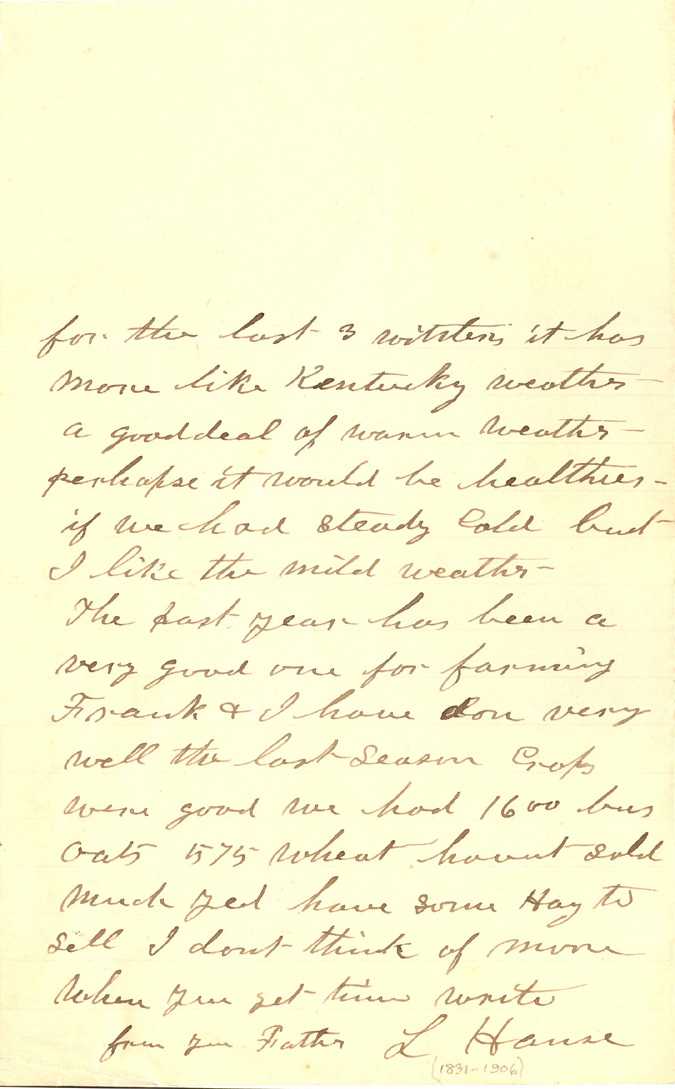 for the last 3 witsters it has
More like Kentucky weather
a good deal of warm weather
perhapse it would be healthier
if we had steady Cold but
I like the mild weather
The past year has been a
very good one for farming
Frank & I have don very
well the last Season Crops
were good we had 1600 bus
Oats 575 wheat havnt sold
much yed have some Hay to
sell I dont think of more
When you get time write
from your Father L Hause
(1831-1906)